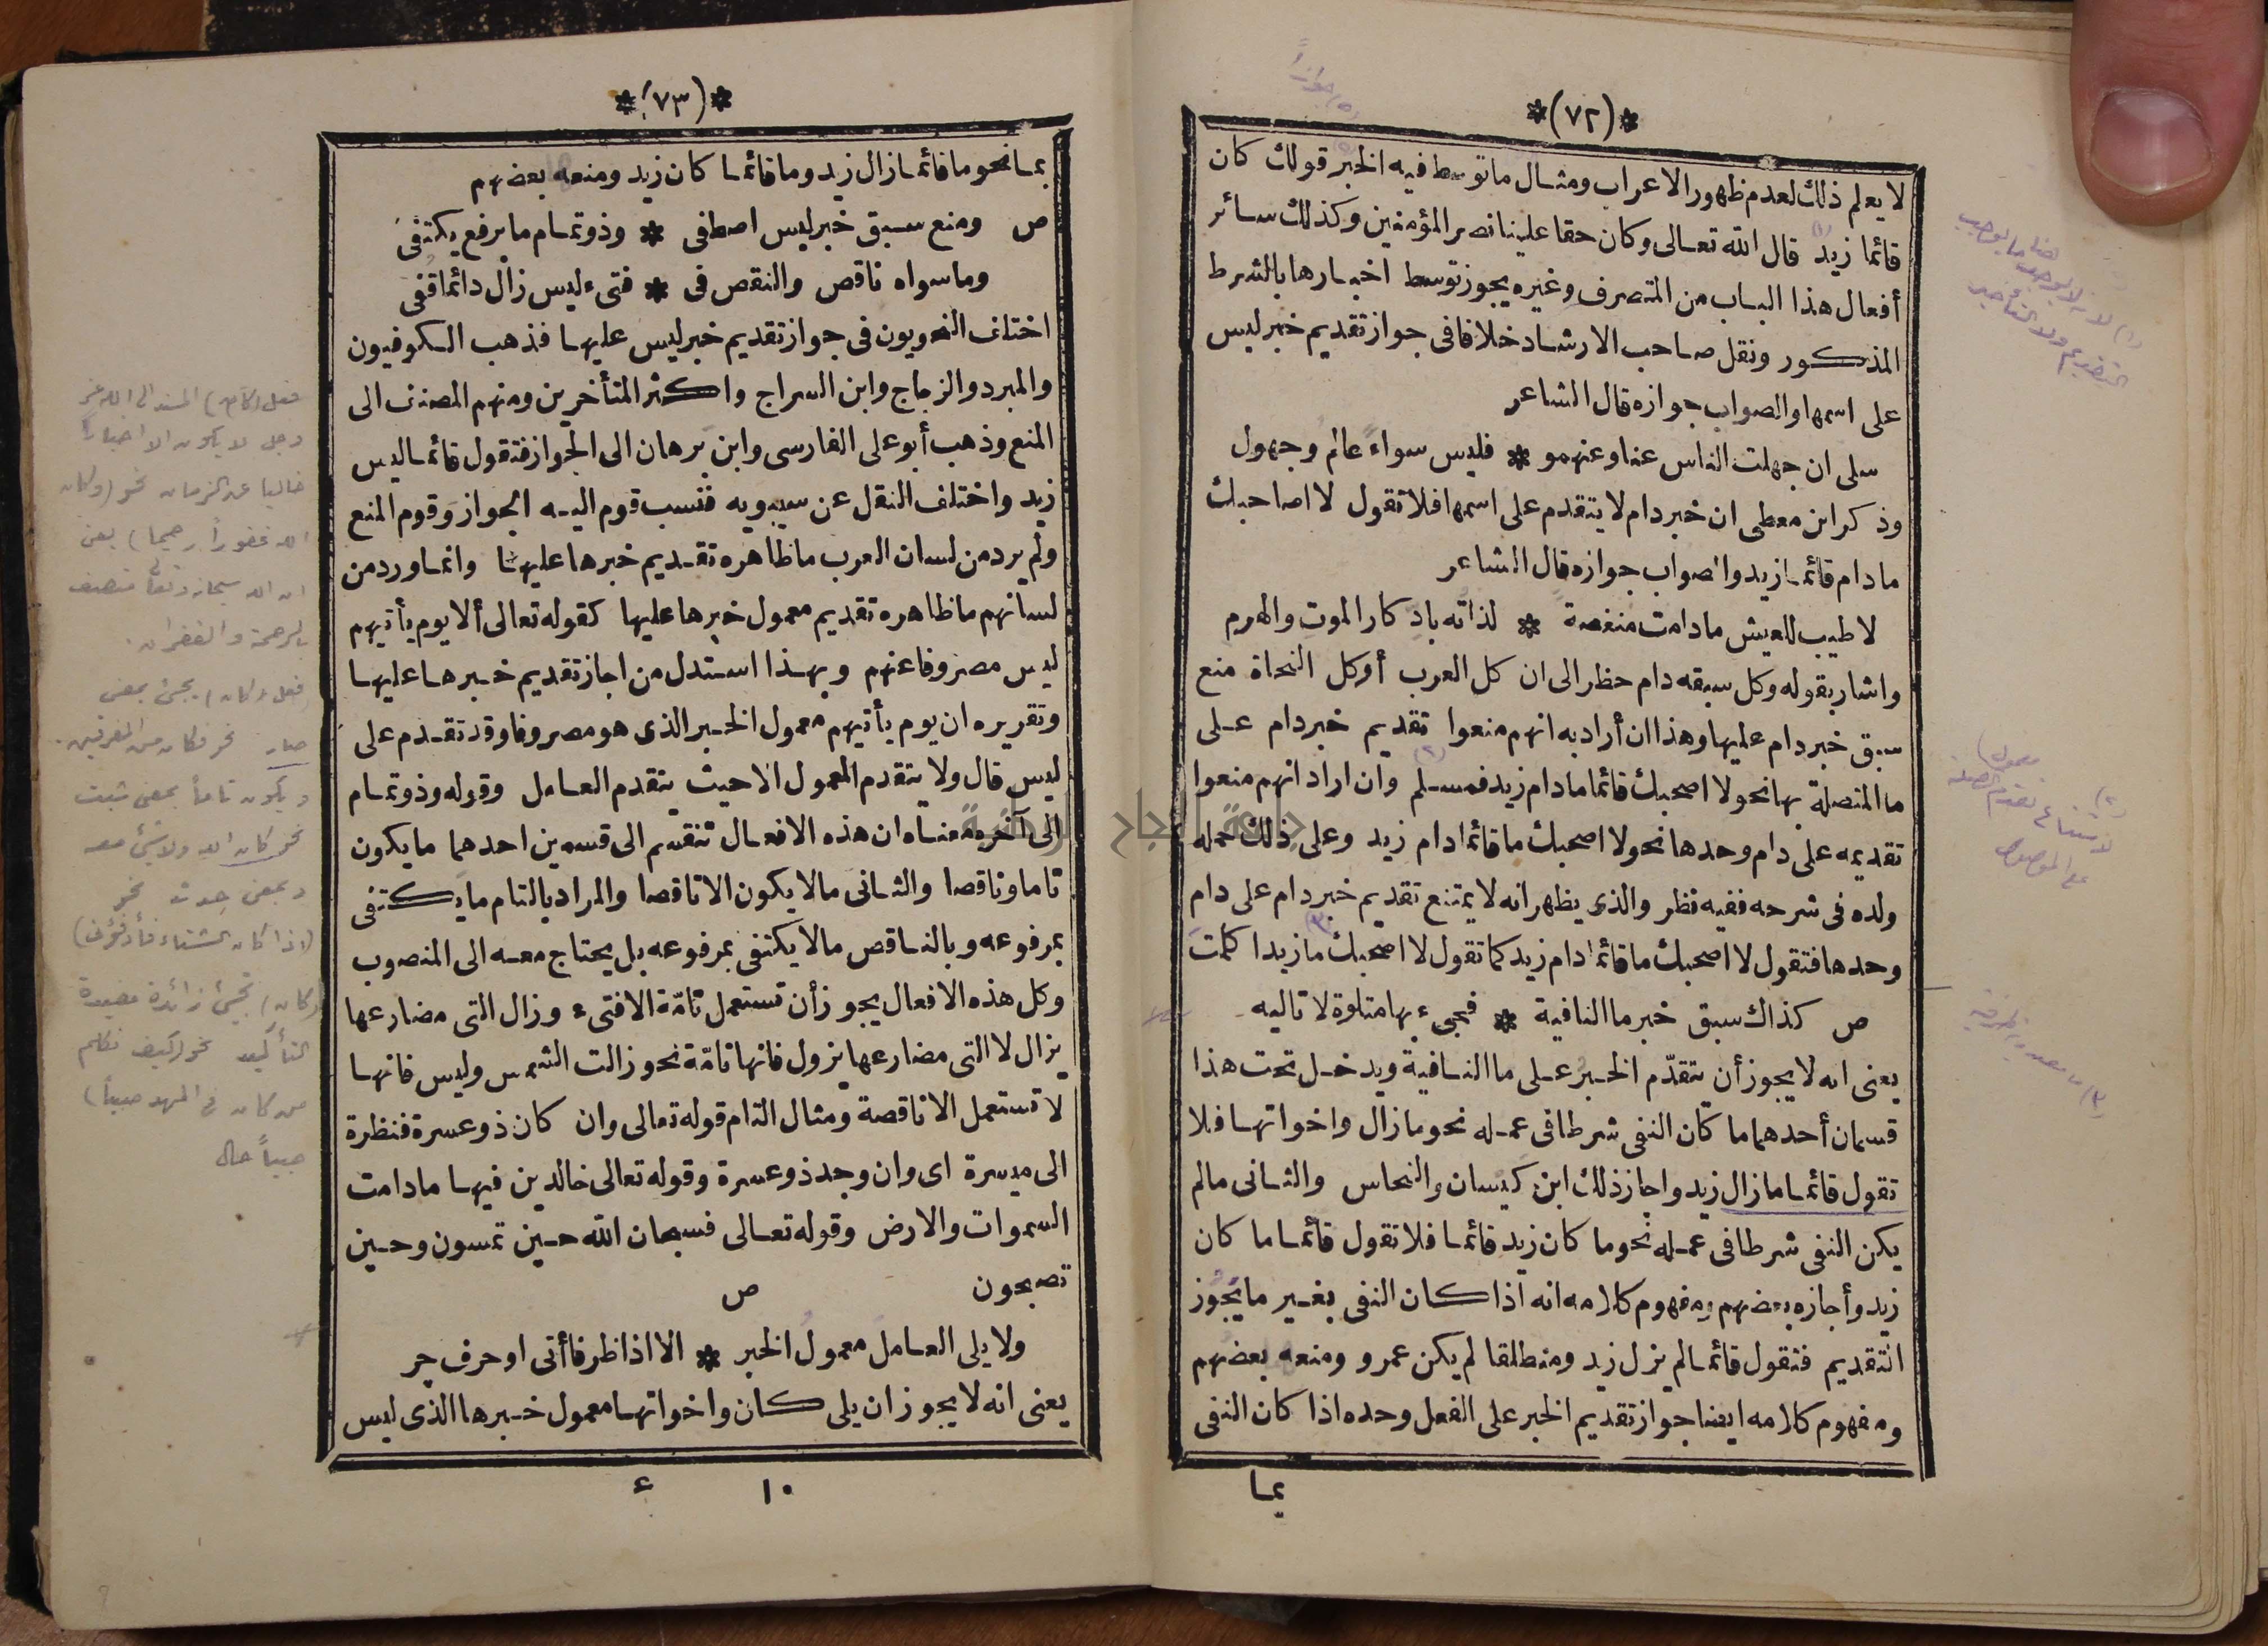 *(٧٢)*
لا يعلم ذلك لعدم ظهور الاعراب ومثال ما توسط فيه الخبر قولك كان
قائما زيد قال الله تعالى وكان حقا علينا نصر المؤمنين وكذلك سائر
أفعال هذا الباب من المتصرف وغيره يجوز توسط اخبارها بالشرط
المذكور ونقل صاحب الارشاد خلافا فى جواز تقديم خبر ليس
على اسمها والصواب جوازه قال الشاعر
سلى ان جهلت الناس عنا وعنهمو * فليس سواء عالم وجهول
وذكر ابن معطى ان خبر دام لا يتقدم على اسمها فلا تقول لا اصاحبك
ما دام قائما زيد والصواب جوازه قال الشاعر
لا طيب للعيش ما دامت منغصة * لذاته بادكار الموت والهرم
واشار بقوله وكل سبقه دام حظر الى ان كل العرب أو كل النحاة منع
سبق خبر دام عليها وهذا ان أراد به انهم منعوا تقديم خبر دام على
ما المتصلة بها نحو لا اصحبك قائما ما دام زيد فمسلم وان اراد انهم منعوا
تقديمه على دام وحدها نحو لا اصحبك ما قائما دام زيد وعلى ذلك حمله
ولده فى شرحه ففيه نظر والذى يظهر انه لا يمتنع تقديم خبر دام على دام
وحدها فتقول لا اصحبك ما قائما دام زيد كما تقول لا اصحبك ما زيدا كلمت
ص كذاك سبق خبر ما النافية * فجىء بها متلوة لا تاليه
يعنى انه لا يجوز أن يتقدّم الخبر على ما النافية ويدخل تحت هذا
قسمان أحدهما ما كان النفى شرطا فى عمله نحو ما زال واخواتها فلا
تقول قائما ما زال زيد واجاز ذلك ابن كيسان والنحاس والثانى ما لم
يكن النفى شرطا فى عمله نحو ما كان زيد قائما فلا تقول قائما ما كان
زيد وأجازه بعضهم ومفهوم كلامه انه اذا كان النفى بغير ما يجوز
التقديم فتقول قائما لم يزل زيد ومنطلقا لم يكن عمرو ومنعه بعضهم
ومفهوم كلامه ايضا جواز تقديم الخبر على الفعل وحده اذا كان النفى
بما
*(٧٣)*
بما نحو ما قائما زال زيد وما قائما كان زيد ومنعه بعضهم
ص ومنع سبق خبر ليس اصطفى * وذو تمام ما برفع يكتفى
وما سواه ناقص والنقص فى * فتىء ليس زال دائما قفى
اختلف النحويون فى جواز تقديم خبر ليس عليها فذهب الكوفيون
والمبرد والزجاج وابن السراج واكثر المتأخرين ومنهم المصنف الى
المنع وذهب أبو على الفارسى وابن برهان الى الجواز فتقول قائما ليس
زيد واختلف النقل عن سيبويه فنسب قوم اليه الجواز وقوم المنع
ولم يرد من لسان العرب ما ظاهره تقديم خبرها عليها وانما ورد من
لسانهم ما ظاهره تقديم معمول خبرها عليها كقوله تعالى ألا يوم يأتيهم
ليس مصروفا عنهم وبهذا استدل من اجاز تقديم خبرها عليها
وتقريره ان يوم يأتيهم معمول الخبر الذى هو مصروفا وقد تقدم على
ليس قال ولا يتقدم المعمول الا حيث يتقدم العامل وقوله وذو تمام
الى آخره معناه ان هذه الافعال تنقسم الى قسمين احدهما ما يكون
تاما وناقصا والثانى ما لا يكون الا ناقصا والمراد بالتام ما يكتفى
بمرفوعه وبالناقص ما لا يكتفى بمرفوعه بل يحتاج معه الى المنصوب
وكل هذه الافعال يجوز أن تستعمل تامّة الا فتىء وزال التى مضارعها
يزال لا التى مضارعها يزول فانها تامّة نحو زالت الشمس وليس فانها
لا تستعمل الا ناقصة ومثال التام قوله تعالى وان كان ذو عسرة فنظرة
الى ميسرة اى وان وجد ذو عسرة وقوله تعالى خالدين فيها ما دامت
السموات والارض وقوله تعالى فسبحان الله حين تمسون وحين
تصبحون ص
ولا يلى العامل معمول الخبر * الا اذا ظرفا أتى او حرف جر
يعنى انه لا يجوز ان يلى كان واخواتها معمول خبرها الذى ليس
١٠ ء
فعل (كان) المسند الى الله عز
وجل لا يكون الا اخبارا
خاليا عن الزمان نحو (وكان
الله غفوراً رحيما) يعنى
ان الله سبحانه وتعالى متصف
بالرحمة والغفران.
فعل (كان) يجئ بمعنى
صار نحو فكان من المغرقين.
ويكون تاماً بمعنى ثبت
نحو كان الله ولا شئ معه
وبمعنى حدث نحو
(اذا كان الشتاء فأدفئونى)
(كان) تجئ زائدة مفيدة
التأكيد نحو (كيف نكلم
من كان فى المهد صبياً)
صبياً حال